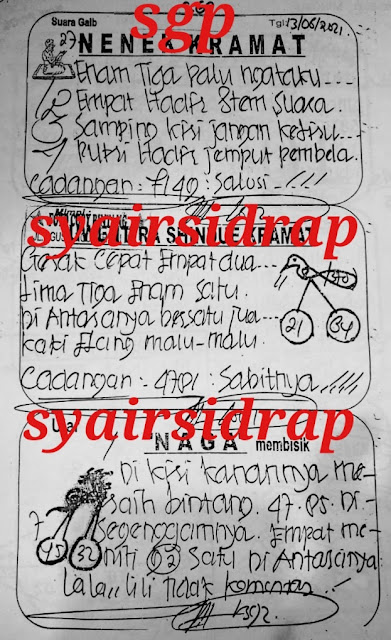 sgp
Suara Gaib
Tgl 13/06/2021
27 NENEK KRAMAT
Enam Tiga palu ngataku
Empat Hadir Stem Suara
Samping kisi jangan
Putri Hadir jemput pembela.
Cadangan : : Salosi
syairsidrap
KRAMAT
Gerak Cepat Empat dua
Lima Tiga Enam Satu.
Di Antaranya bersatu jua
kaki malu-malu.
21 34
Cadangan : 4701 : Sabitnya
syairsidrap
NAGA membisik
Di kisi kanannya me-
raih bintang. 47. Di-
7 segenggamnya. Empat me-
45 32 niti 02 Satu Di Antaranya
Lala.. Lili Tidak komentar